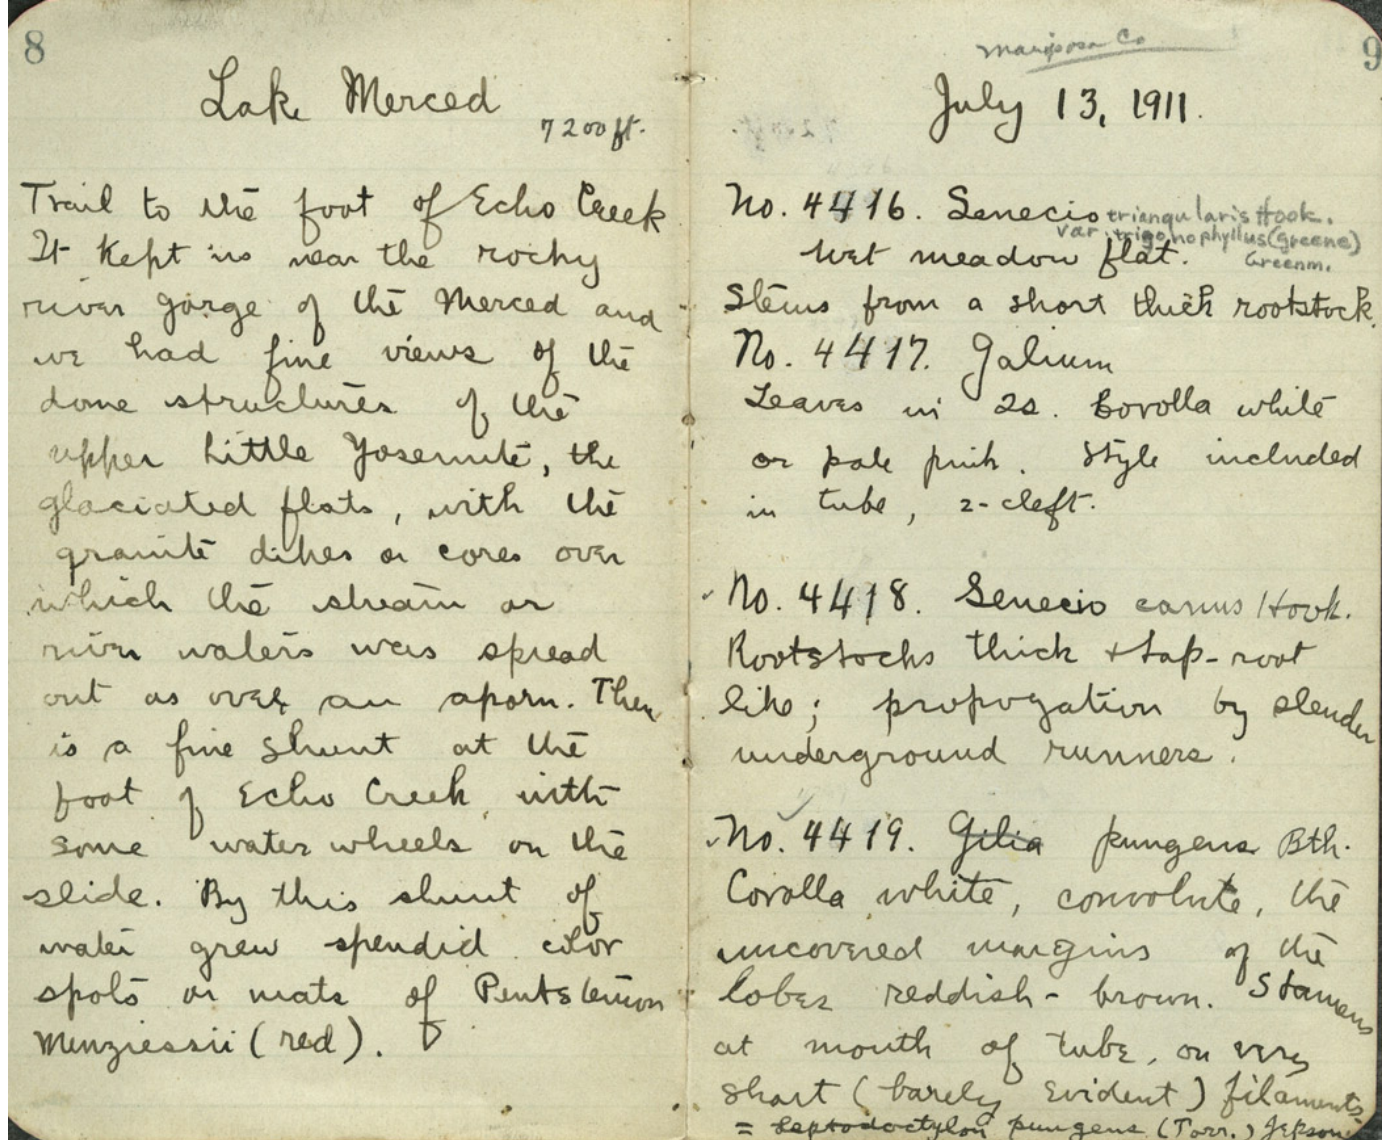 8
Lake Merced
7200 ft.
Trail to the foot of Echo Creek
It kept us near the rocky
river gorge of the Merced and
we had fine views of the
dome structures of the
upper Little Yosemite, the
glaciated flats, with the
granite dikes or cores over
which the stream or
river waters was spread
out as over an aporn. There
is a fine shunt at the
foot of Echo Creek, with
some water wheels on the
slide. By this shunt of
water grew spendid color
spots or mats of Pentstemon
Menziesii (red).
Mariposa Co
9
July 13, 1911.
No. 4416. Senecio triangularis Hook.
var. trigonophyllus (Greene)
Greenm.
Wet meadow flat.
Stems from a short thick rootstock.
No. 4417. Galium
Leaves in 2s. Corolla white
or pale pink. Style included
in tube, 2-cleft.
No. 4418. Senecio canus Hook.
Rootstocks thick + tap-root
like; propogation by slender
underground runners.
No. 4419. Gilia pungens Bth.
Corolla white, convolute, the
uncovered margins of the
lobes reddish-brown. Stamens
at mouth of tube, on very
short (barely evident) filaments.
= Leptodactylon pungens (Torr.) Jepson